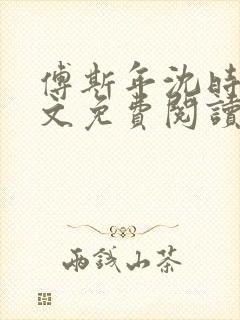 傅斯年沈時
文免費閱讀
兩錢山茶